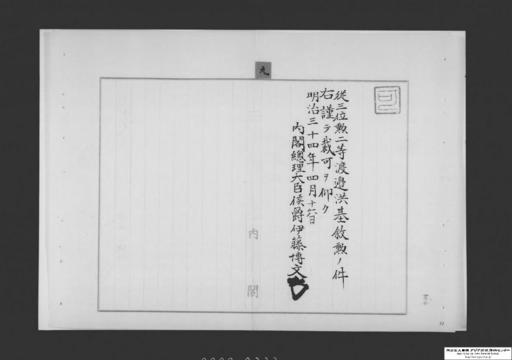 九
可
従三位勲二等渡邉洪基叙勲ノ件
右謹テ裁可ヲ仰ク
明治三十四年四月十六日
内閣総理大臣侯爵伊藤博文
内閣